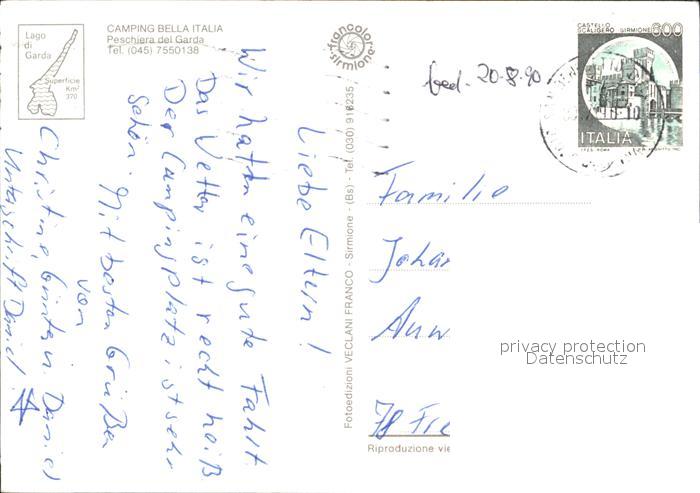 Lago
di
Garda
Superficie
Km²
370
CAMPING BELLA ITALIA
Peschiera del Garda
Tel. (045) 7550138
francolor
sirmione
CASTELLO
SCALIGERO SIRMIONE
600
ITALIA
20-8-90
Liebe Eltern!
Wir hatten eine gute Fahrt.
Das Wetter ist recht heiß
Der Campingplatz ist sehr
schön. Mit besten Grüßen
von
Christine, Günter u. Daniel
Unterschrift Daniel
Fotoedizioni VECLANI FRANCO - Sirmione - (Bs) - Tel. (030) 916235
Familie
Joha
Anw
78 Fre
privacy protection
Datenschutz
Riproduzione vie